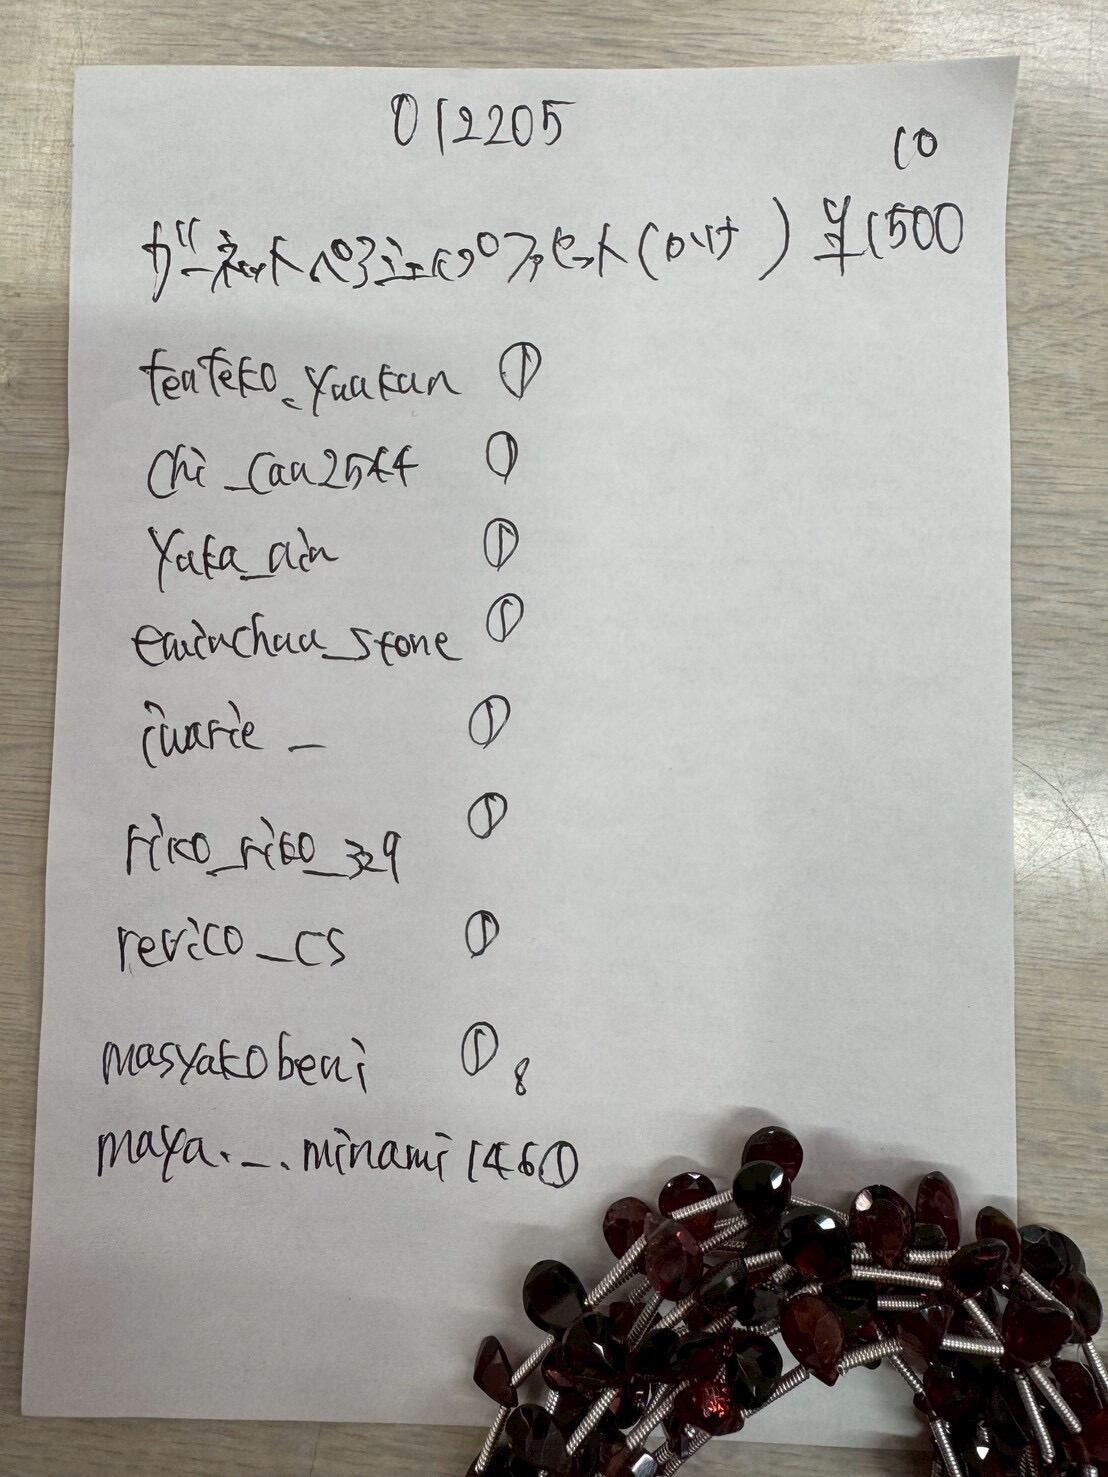 012205
10
ガーネットペアシェイプファセット(ロけ) ¥1500
teateko_yaakan ①
chi_caa2544 ①
yuka_ain ①
eminchaa_stone ①
iwarie_ ①
riko_riko_329 ①
revico_cs ①
masyakobeni ① 8
maya._.minami146①